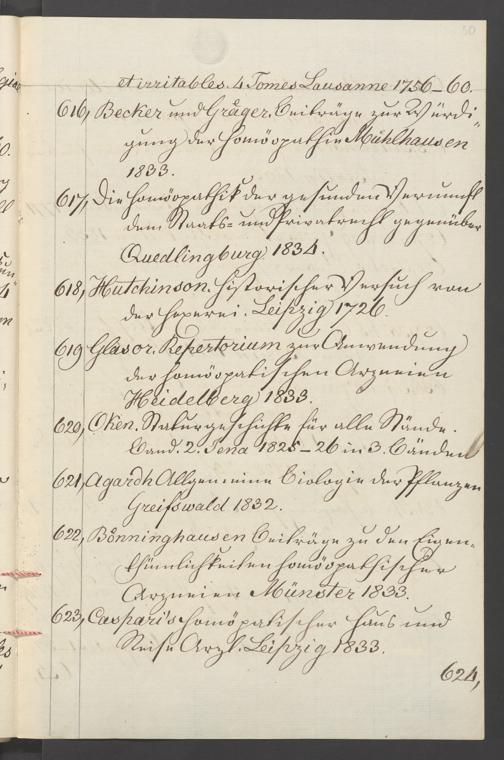 50
et irritables. 4 Tomes Lausanne 1756-60.
616, Becker und Gräger. Beiträge zur Würdi-
gung der Homöopathie Mühlhausen
1833.
617, Die Homöopathik der gesunden Vernunft
dem Staats- und Privatrecht gegenüber
Quedlingburg 1834.
618, Hutchinson. Historischer Versuch von
der Hexerei. Leipzig 1726.
619 Glasor. Repertorium zur Anwendung
der homöopatischen Arzneien
Heidelberg 1833.
620, Oken. Naturgeschichte für alle Stände.
Band. 2. Jena 1825-26 in 3. Bänden
621, Agardh Allgemeine Biologie der Pflanzen
Greifswald 1832.
622, Bönninghausen Beiträge zu den Eigen-
thümlichkeiten homöopathischer
Arzneien Münster 1833.
623, Caspari's homöpatischer Haus und
Reise Arzt. Leipzig 1833.
624,